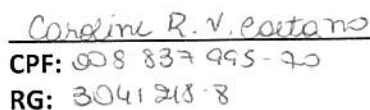 Caroline R. V. Caetano
CPF: 008 837 995-70
RG: 3041 218-8